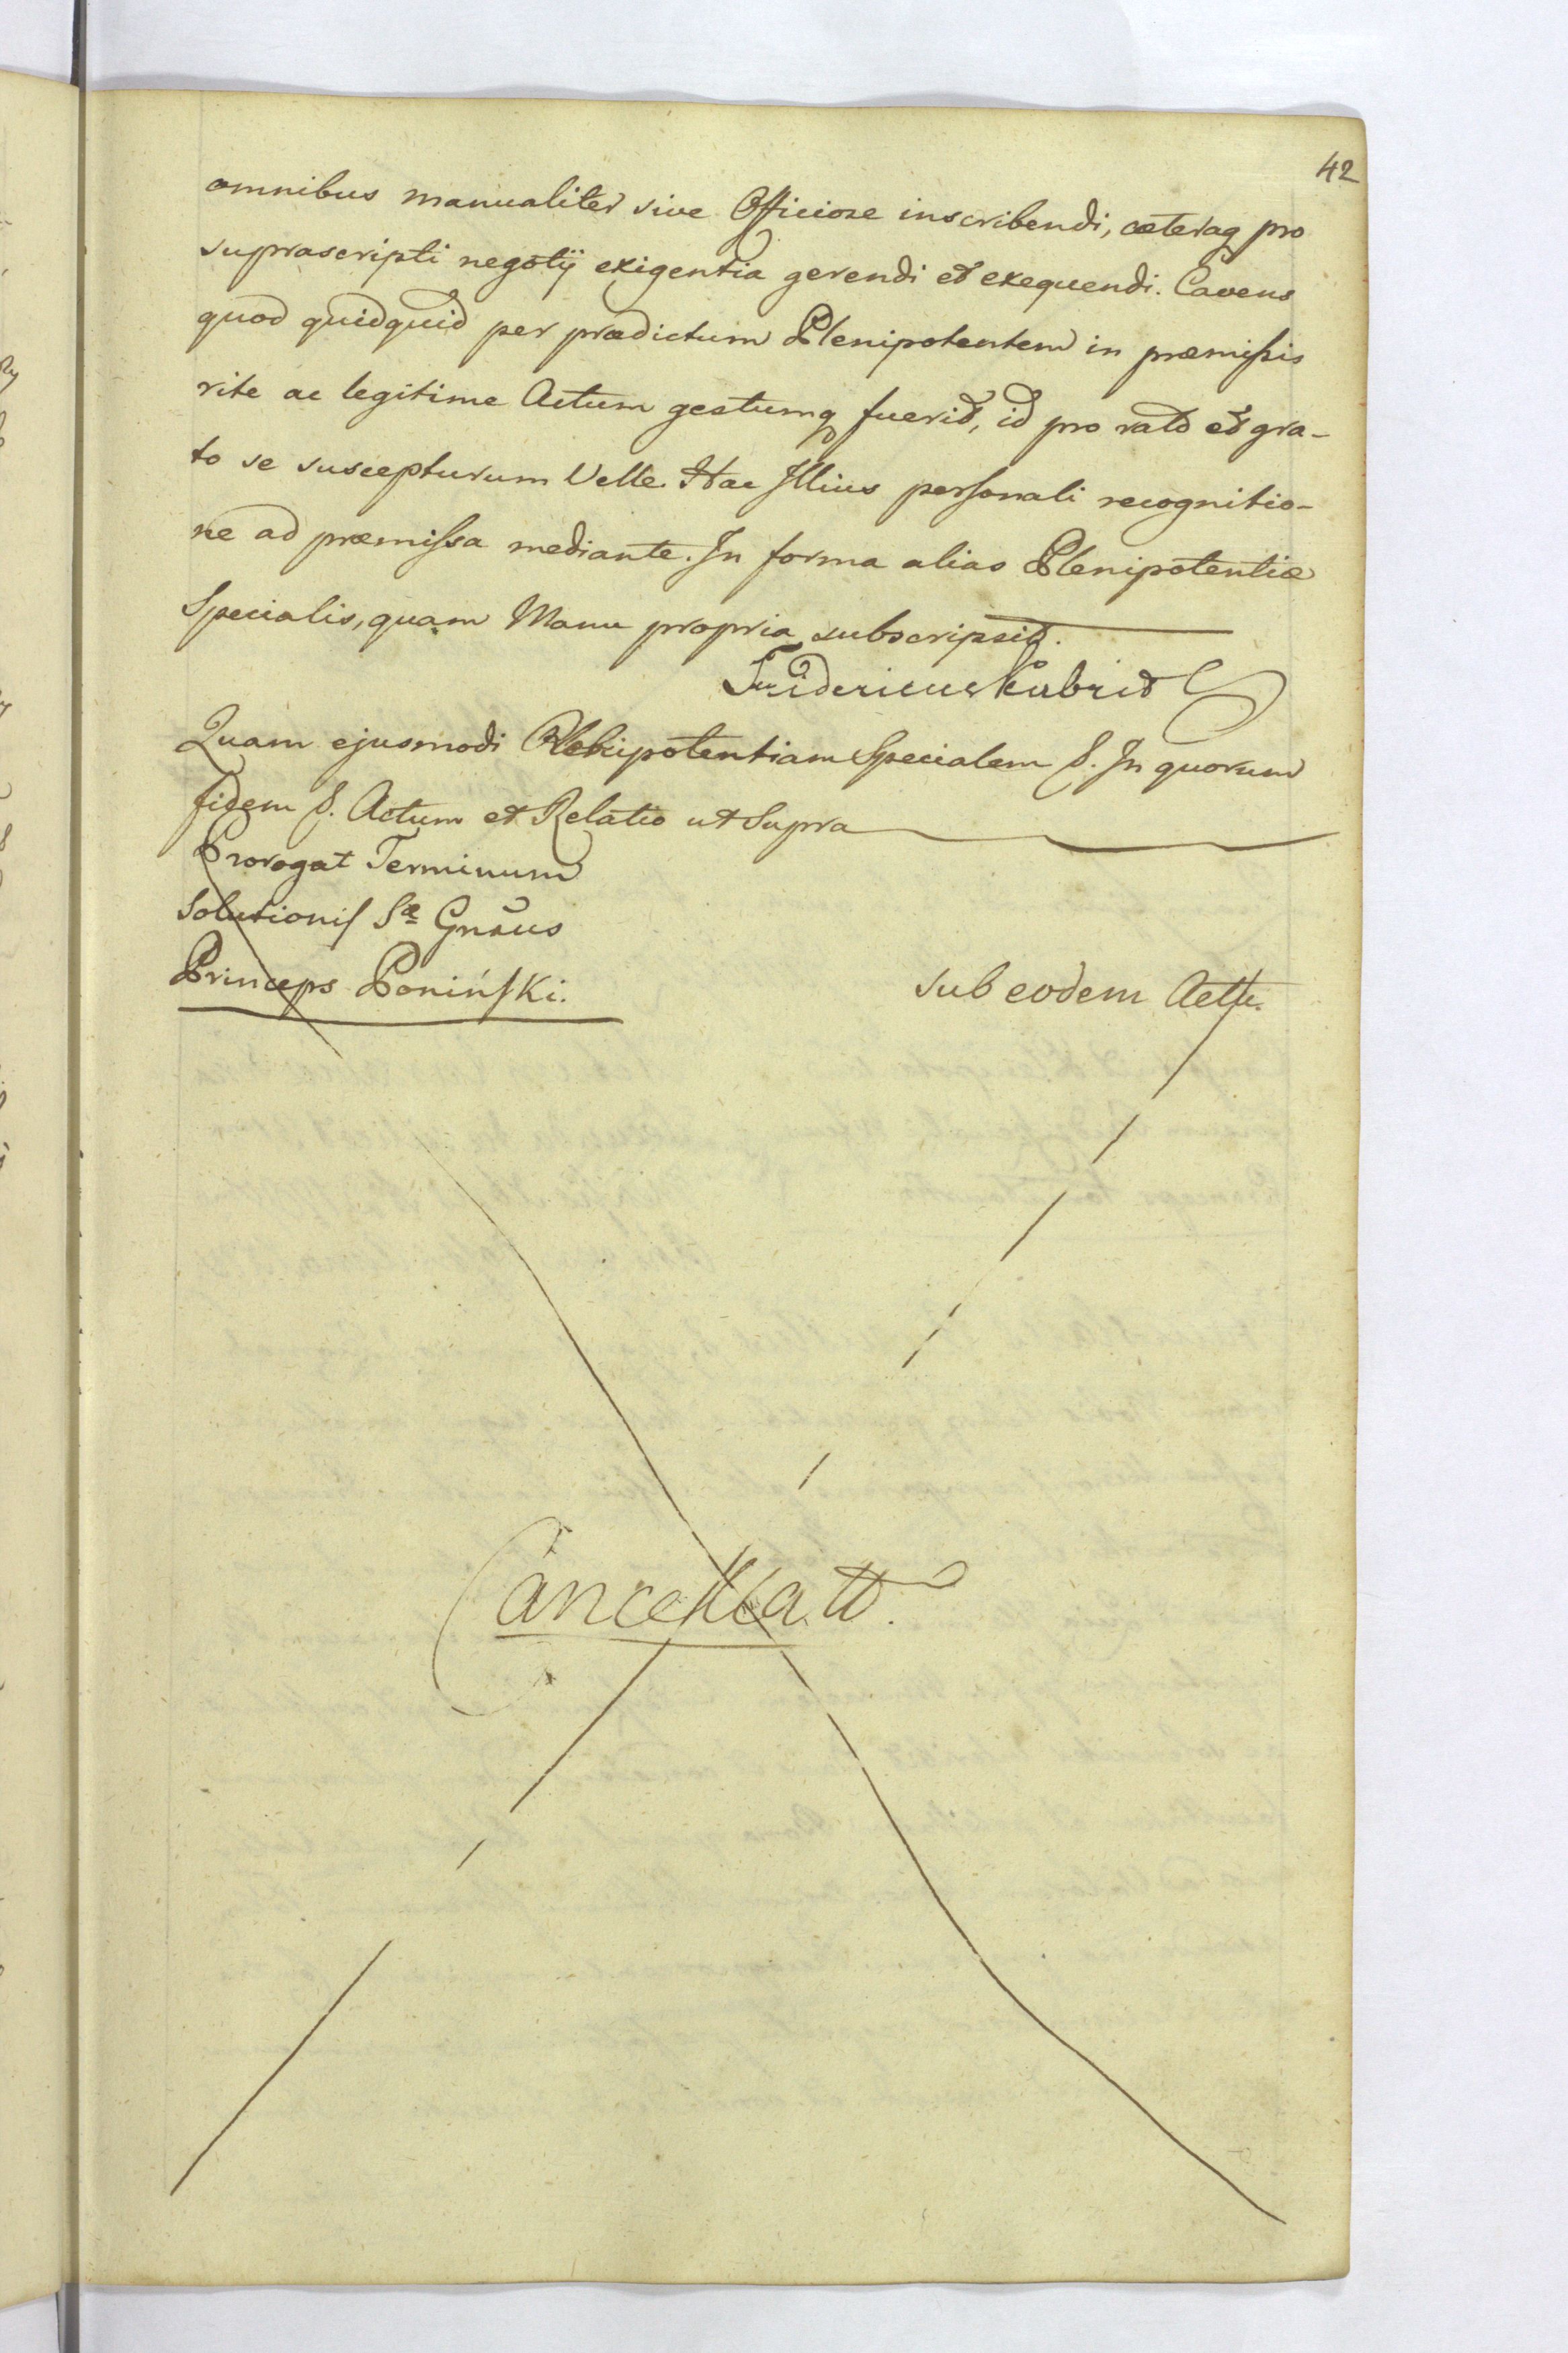 42
omnibus manualiter sive Officiose inscribendi, cæteraq pro
suprascripti negotÿ exigentia gerendi et exequendi. Cavens
quod quidquid per prædictum Plenipotentem in præmissis
rite ac legitime Actum gestumq fuerit, id pro rato et gra-
to se suscepturum Velle. Hac Illius personali recognitio-
ne ad præmissa mediante. In forma alias Plenipotentiæ
Specialis, quam Manu propria subscripsit.
Fridericus Kabrit
Quam ejusmodi Plenipotentiam Specialem S. In quorum
fidem S. Actum et Relatio ut Supra
Prorogat Terminum
Solutionis Sæ Gnrus
Princeps Poniński.
sub eodem Actu.
Cancellatt.